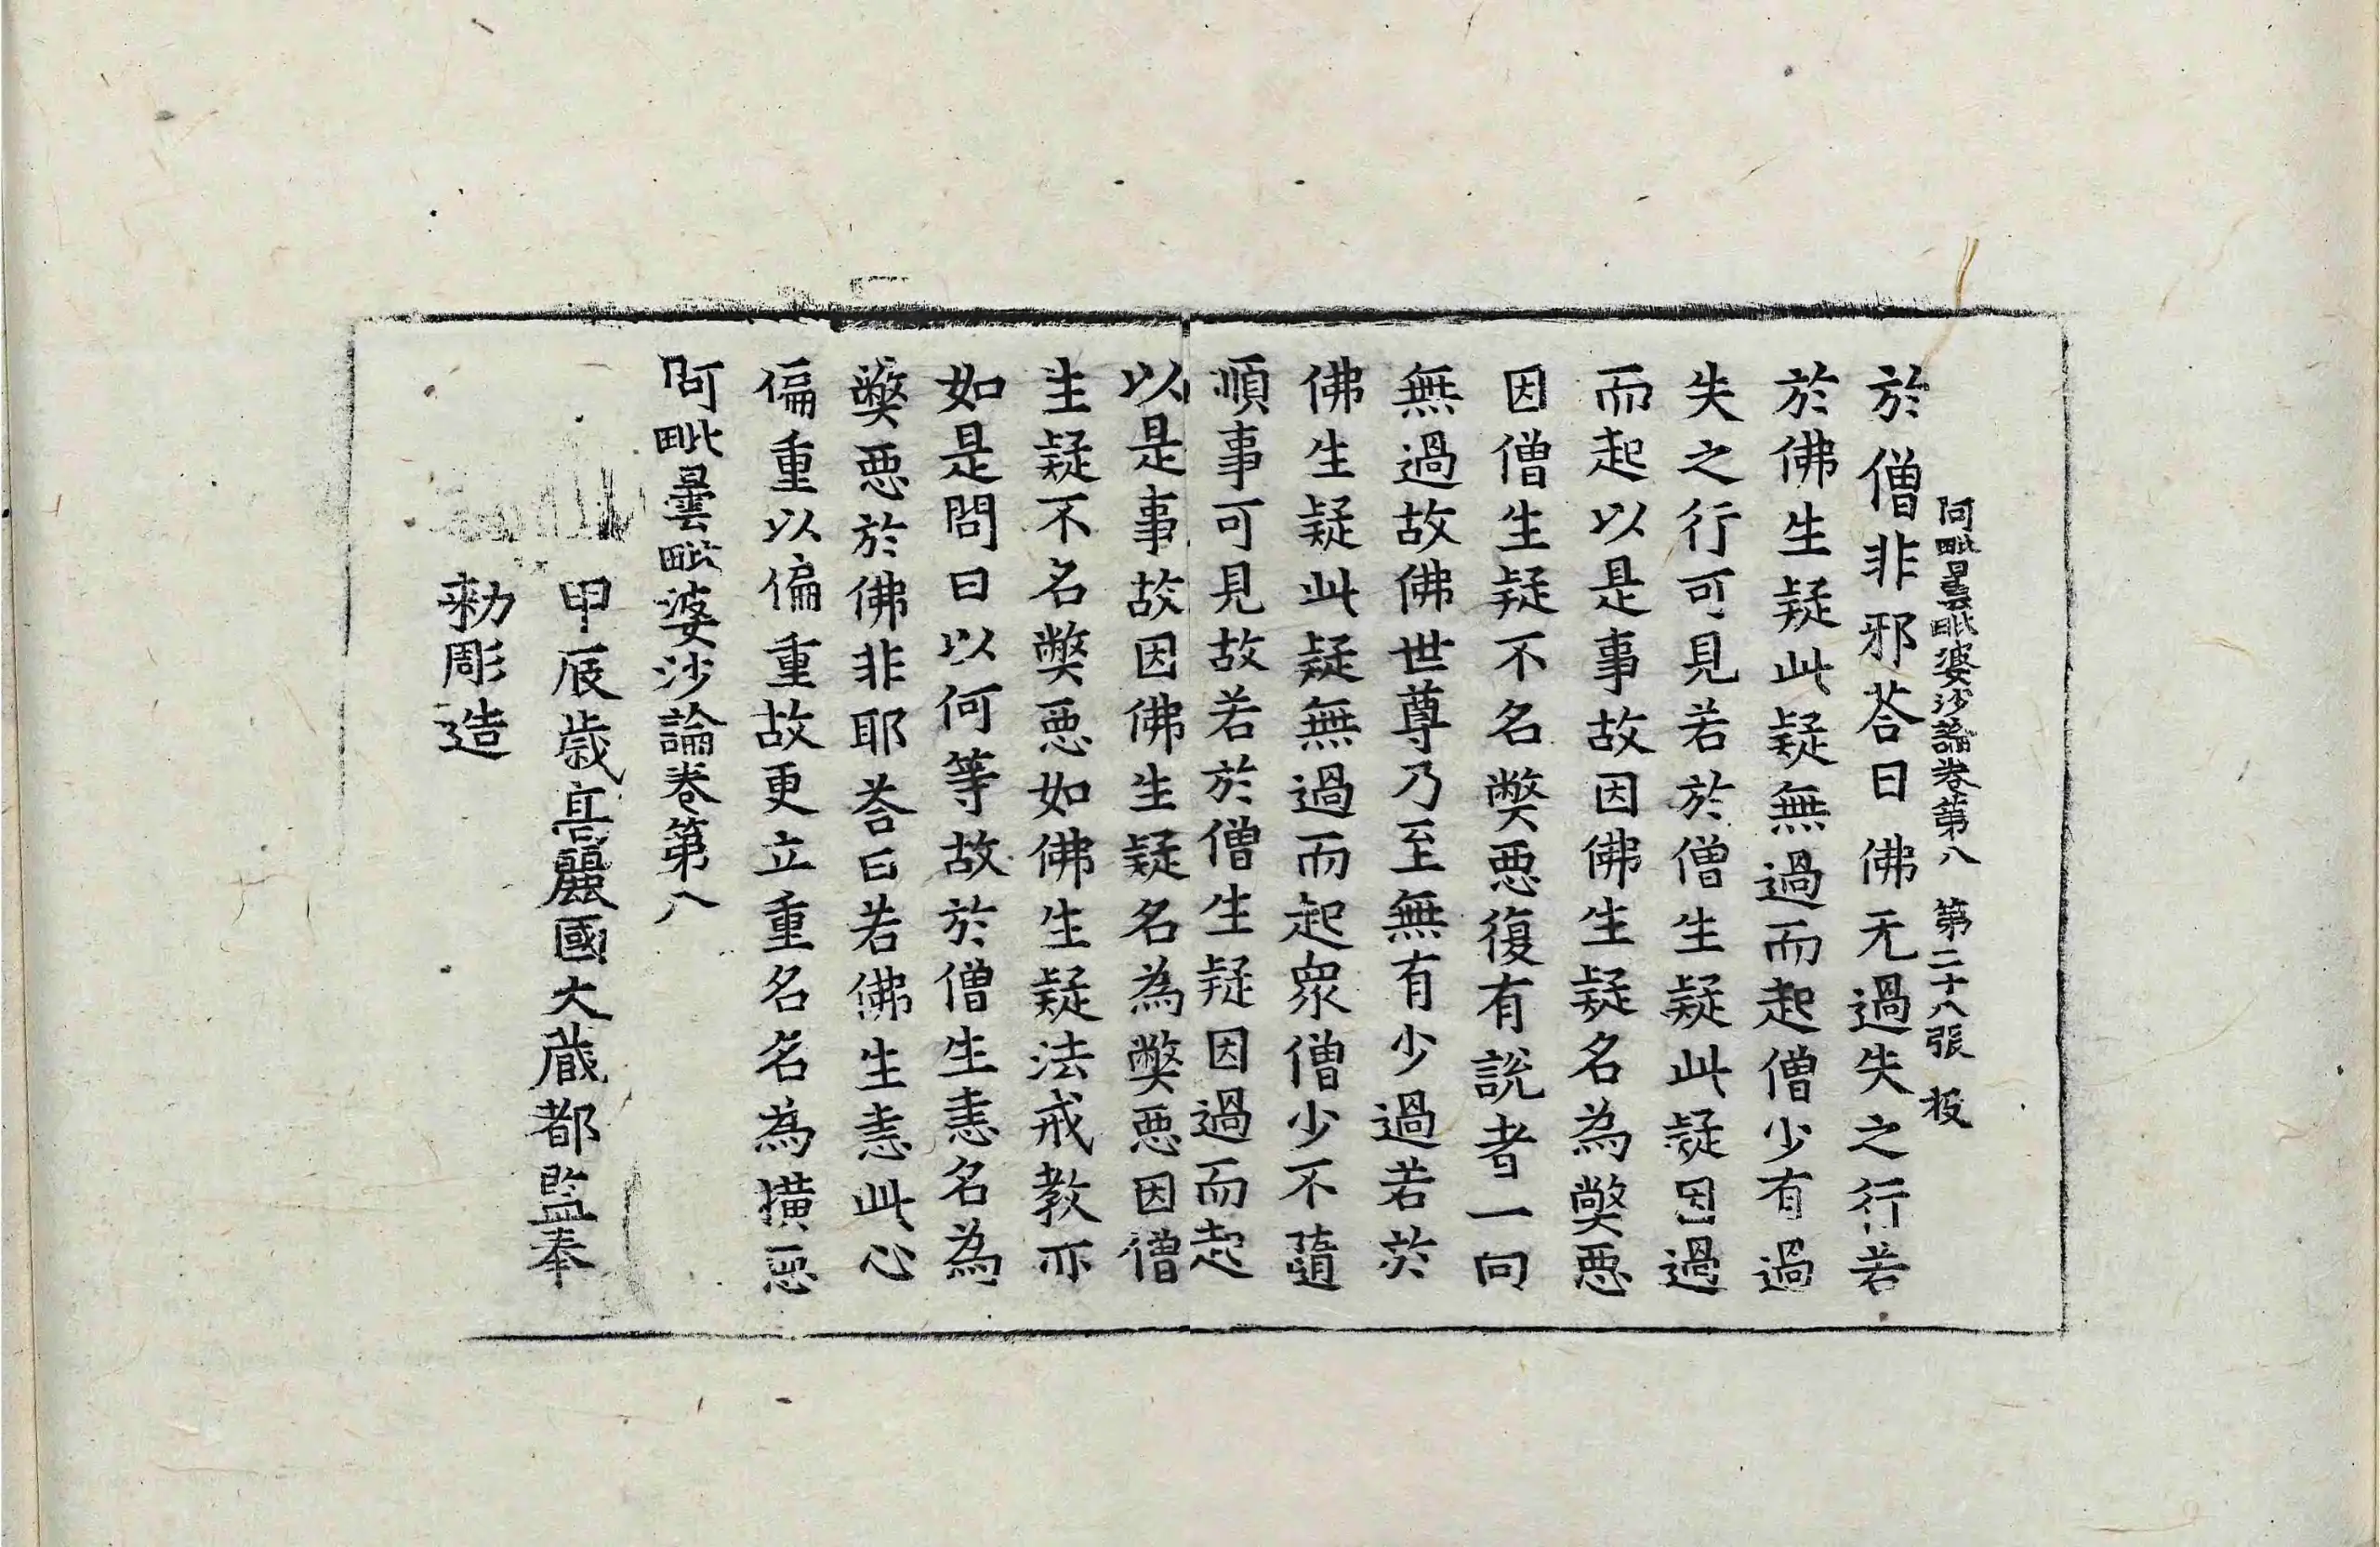 阿毗曇毗婆沙論卷第八 第二十八張 投
於僧非邪荅曰佛无過失之行若
於佛生疑此疑無過而起僧少有過
失之行可見若於僧生疑此疑因過
而起以是事故因佛生疑名為弊惡
因僧生疑不名弊惡復有說者一向
無過故佛世尊乃至無有少過若於
佛生疑此疑無過而起眾僧少不隨
順事可見故若於僧生疑因過而起
以是事故因佛生疑名為弊惡因僧
生疑不名弊惡如佛生疑法戒教亦
如是問曰以何等故於僧生恚名為
弊惡於佛非耶荅曰若佛生恚此心
偏重以偏重故更立重名名為撗惡
阿毗曇毗婆沙論卷第八
甲辰歲高麗國大藏都監奉
勑彫造